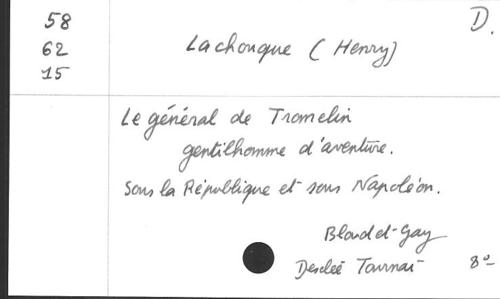 58
62
15
D.
Lachouque (Henry)
Le général de Tromelin
gentilhomme d'aventure.
Sous la République et sous Napoléon.
Bloud et Gay
Desclée Tournai 8º